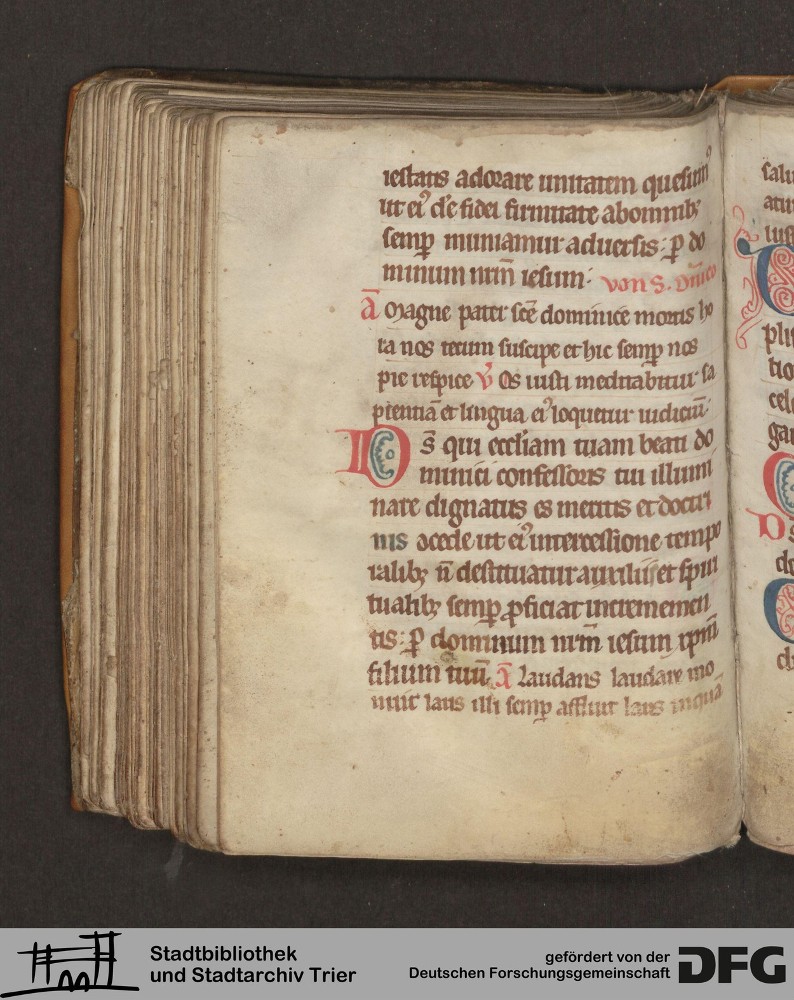 iestatis adorare unitatem quesumꝰ
ut eiꝰ dē fidei firmitate ab omnibꝫ
semꝑ muniamur aduersis: ꝑ do
minum nr̄m iesum: von S. Dn̄ico
Ā Magne pater scē dominice mortis ho
ra nos tecum suscipe et hic semꝑ nos
pie respice ꝟ Os iusti meditabitur sa
pientiā et lingua eiꝰ loquetur iudiciū:
Ds̄ qui eccliam tuam beati do
minici confessoris tui illumi
nare dignatus es meritis et doctri
nis ɔcede ut eiꝰ intercessione tempo
ralibꝫ n̄ destituatur auxiliis et spiri
tualibꝫ semꝑ ꝓficiat incremen
tis: ꝑ dominum nr̄m iesum xp̄m
filium tuū Ā Laudans laudare mo
nuit laus illi semꝑ affluit laus
salu
atu
iusti
plis
tio
cele
gau
Ds
de
Stadtbibliothek
und Stadtarchiv Trier
gefördert von der
Deutschen Forschungsgemeinschaft
DFG